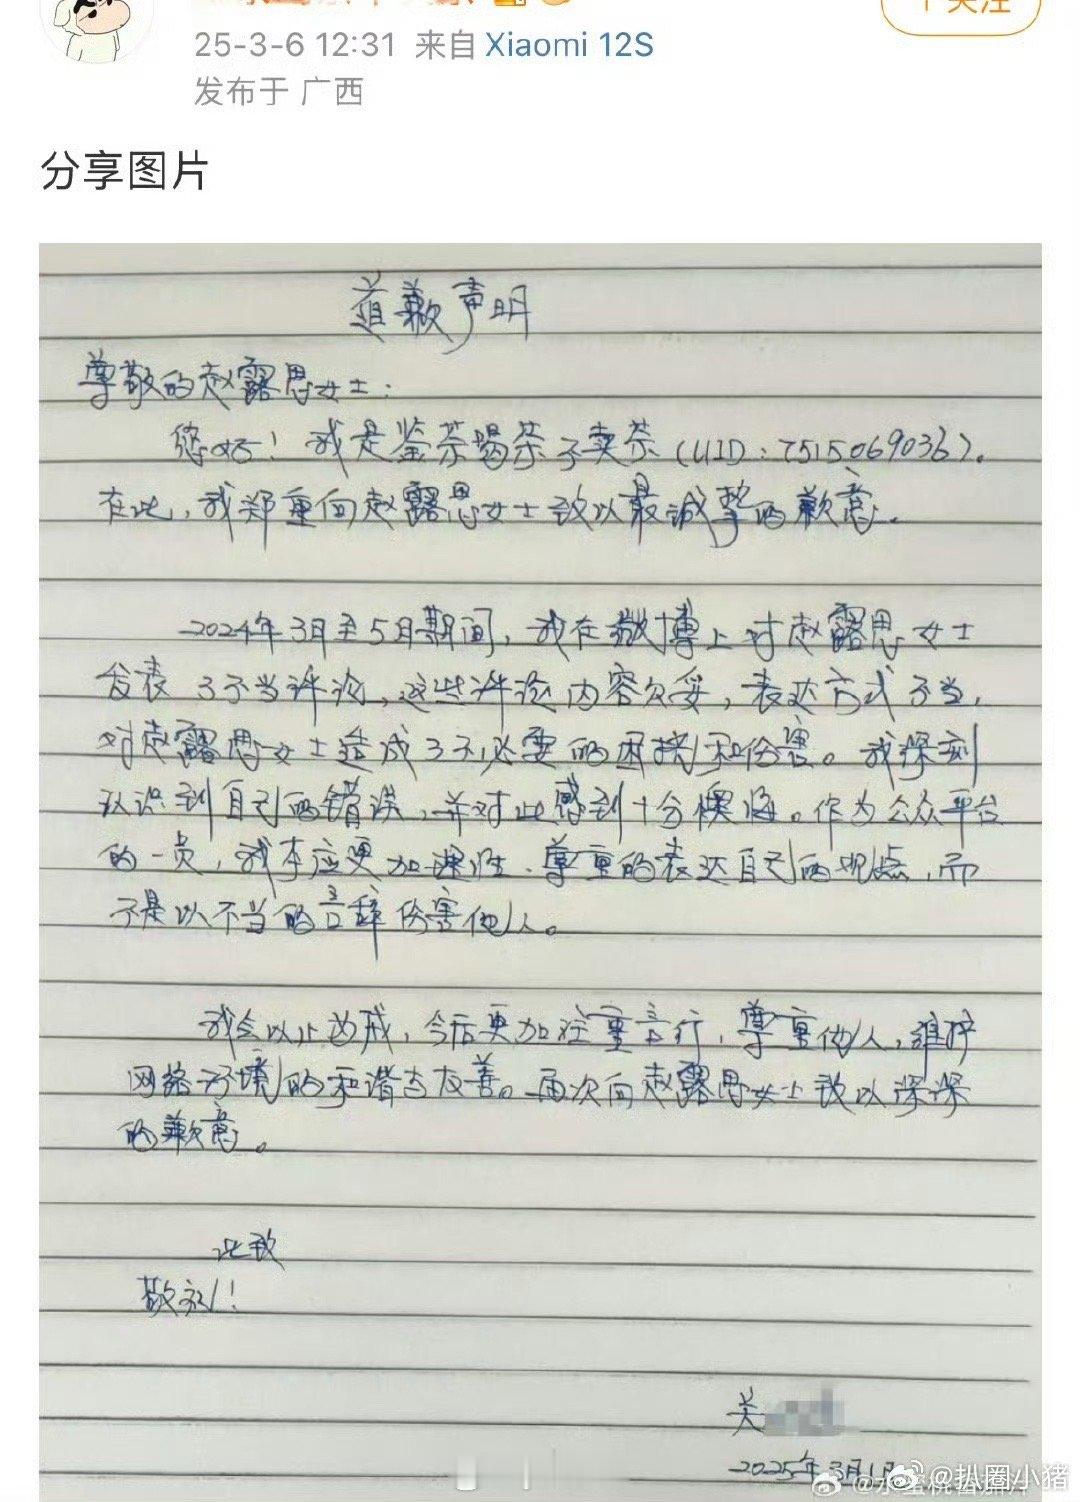 25-3-6 12:31 来自 Xiaomi 12S
发布于 广西
分享图片
道歉声明
尊敬的赵露思女士：
您好！我是鉴茶喝茶不卖茶（UID：7515069036）。
在此，我郑重向赵露思女士致以最诚挚的歉意。
2024年3月至5月期间，我在微博上对赵露思女士
发表了不当评论，这些评论内容欠妥，表达方式不当，
对赵露思女士造成了不必要的困扰和伤害。我深刻
认识到自己的错误，并对此感到十分懊悔。作为公众平台
的一员，我本应更加理性、尊重的表达自己的观点，而
不是以不当的言辞伤害他人。
我会以此为戒，今后更加注重言行，尊重他人，维护
网络环境的和谐与友善。再次向赵露思女士致以深深
的歉意。
此致
敬礼！
关
2025年3月1日
@扒圈小猪